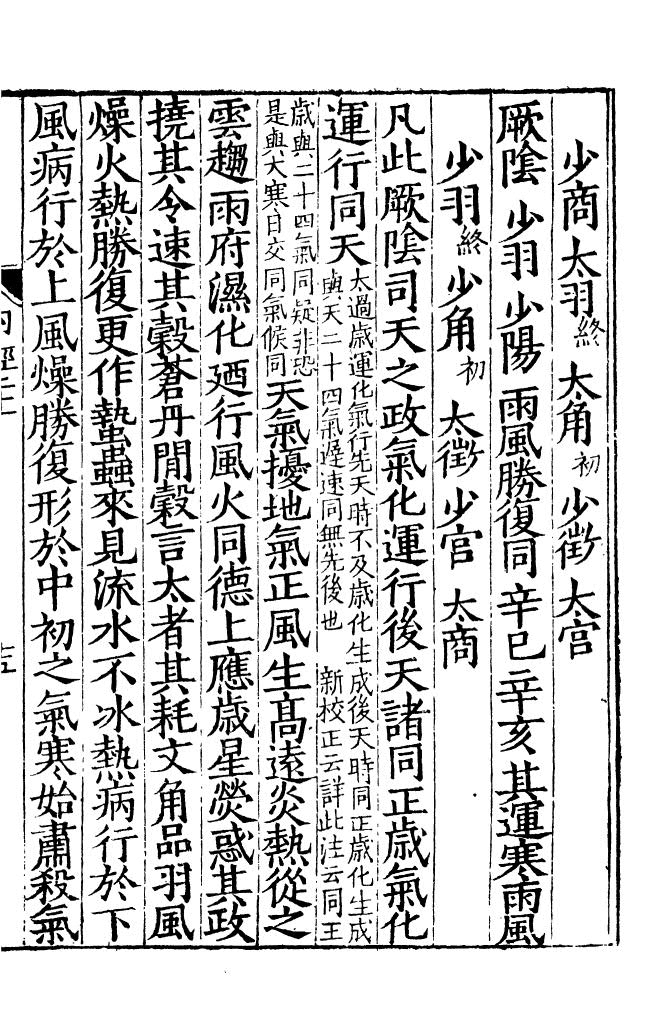 少商太羽終 太角初 少徵 太宮
厥陰 少羽 少陽 雨風勝復同 辛巳 辛亥 其運寒雨風
少羽終 少角初 太徵 少宮 太商
凡此厥陰司天之政氣化運行後天諸同正歲氣化
運行同天
太過歲運化氣行先天時不及歲化生成後天時同正歲化生成
與天二十四氣遲速同無先後也 新校正云詳此注云同王
歲與二十四氣同疑非恐
是與大寒日交同氣候同
天氣擾地氣正風生髙遠炎熱從之
雲趨雨府濕化廼行風火同德上應歲星熒惑其政
撓其令速其穀蒼丹閒穀言太者其耗文角品羽風
燥火熱勝復更作蟄蟲來見流水不冰熱病行於下
風病行於上風燥勝復形於中初之氣寒始肅殺氣